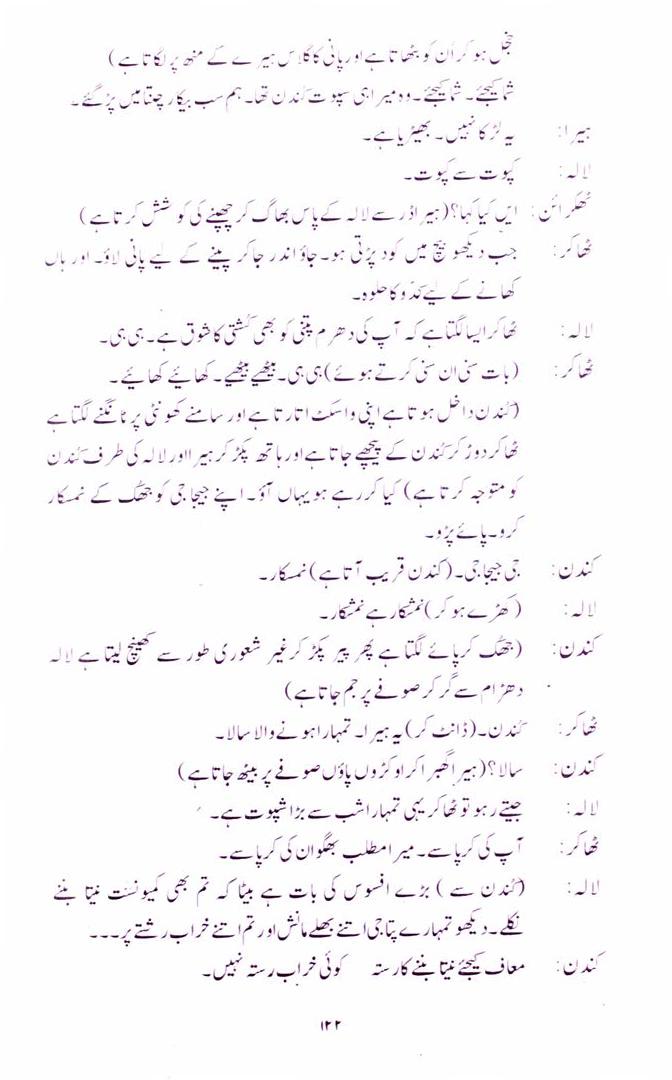 خجل ہو کر اُن کو بٹھاتا ہے اور پانی کا گلاس ہیرے کے منھ پر لگاتا ہے)
شما کیجئے۔ شما کیجئے۔ وہ میرا ہی سپوت کُندن تھا۔ ہم سب بیکار چنتا میں پڑ گئے۔
ہیرا: یہ لڑکا نہیں۔ بھیڑیا ہے۔
لالہ: کپوت سے کپوت۔
ٹھکرائن: ایں کیا کہا؟ (ہیرا ڈر سے لالہ کے پاس بھاگ کر چھپنے کی کوشش کرتا ہے)
ٹھاکر: جب دیکھو بیچ میں کود پڑتی ہو۔ جاؤ اندر جا کر پینے کے لیے پانی لاؤ۔ اور ہاں
کھانے کے لیے کدّو کا حلوہ۔
لالہ: ٹھاکر ایسا لگتا ہے کہ آپ کی دھرم پتنی کو بھی کُشتی کا شوق ہے۔ ہی ہی۔
ٹھاکر: (بات سنی ان سنی کرتے ہوئے) ہی ہی۔ بیٹھے بیٹھے۔ کھائیے کھائیے۔
(کُندن داخل ہوتا ہے اپنی واسکٹ اتارتا ہے اور سامنے کھونٹی پر ٹانگنے لگتا ہے
ٹھاکر دوڑ کر کُندن کے پیچھے جاتا ہے اور ہاتھ پکڑ کر ہیرا اور لالہ کی طرف کُندن
کو متوجہ کرتا ہے) کیا کر رہے ہو یہاں آؤ۔ اپنے جیجا جی کو جھُک کے نمسکار
کرو۔ پائے پڑو۔
کندن: جی جیجا جی۔ (کندن قریب آتا ہے) نمسکار۔
لالہ: (کھڑے ہو کر) نمشکار ہے نمشکار۔
کندن: (جھک کر پائے لگتا ہے پھر پیر پکڑ کر غیر شعوری طور سے کھینچ لیتا ہے لالہ
دھڑام سے گر کر صوفے پر جم جاتا ہے)
ٹھاکر: کُندن۔ (ڈانٹ کر) یہ ہیرا۔ تمہارا ہونے والا سالا۔
کندن: سالا؟ (ہیرا گھبرا کر اوکڑوں پاؤں صوفے پر بیٹھ جاتا ہے)
لالہ: جیتے رہو تو ٹھاکر یہی تمہارا شب سے بڑا شپوت ہے۔
ٹھاکر: آپ کی کرپا سے۔ میرا مطلب بھگوان کی کرپا سے۔
لالہ: (کُندن سے) بڑے افسوس کی بات ہے بیٹا کہ تم بھی کمیونسٹ نیتا بننے
نکلے۔ دیکھو تمہارے پتا جی اتنے بھلے مانش اور تم اتنے خراب رشتے پر۔۔۔
کندن: معاف کیجئے نیتا بننے کا رستہ کوئی خراب رستہ نہیں۔
۱۲۲